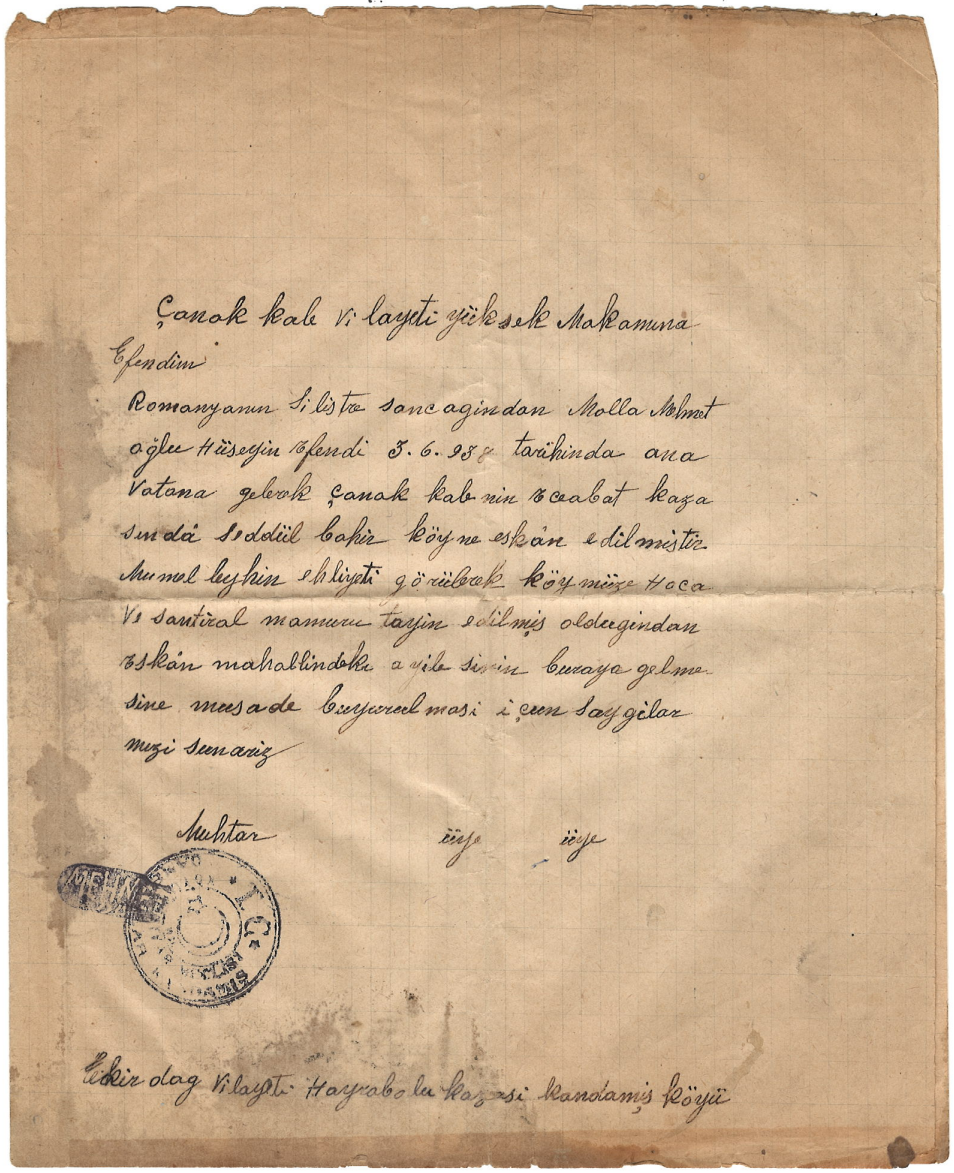 Çanak kale Vilayeti yüksek Makamına
Efendim
Romanyanın Silistre sancagindan Molla Mehmet
oğlu Hüseyin Efendi 3.6.938 tarihinda ana
Vatana gelerek Çanak kale nin Eceabat kaza
sında Seddül bahir köyne eskân edilmiştir
Mumaileyhin ehliyeti görülerek köymüze Hoca
Ve santiral mamuru tayin edilmiş oldugindan
Eskân mahallindeki ayile sinin buraya gelme
sine musade buyurulmasi içun Saygilar
mızi sunariz
Muhtar üye üye
T.C.
Tekirdag Vilayeti Hayrabolu kazasi kandamiş köyü